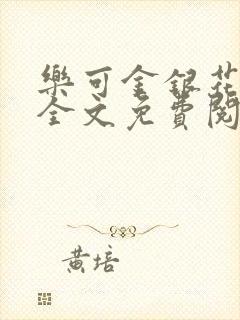 樂可金銀花
全文免費閱
黃培